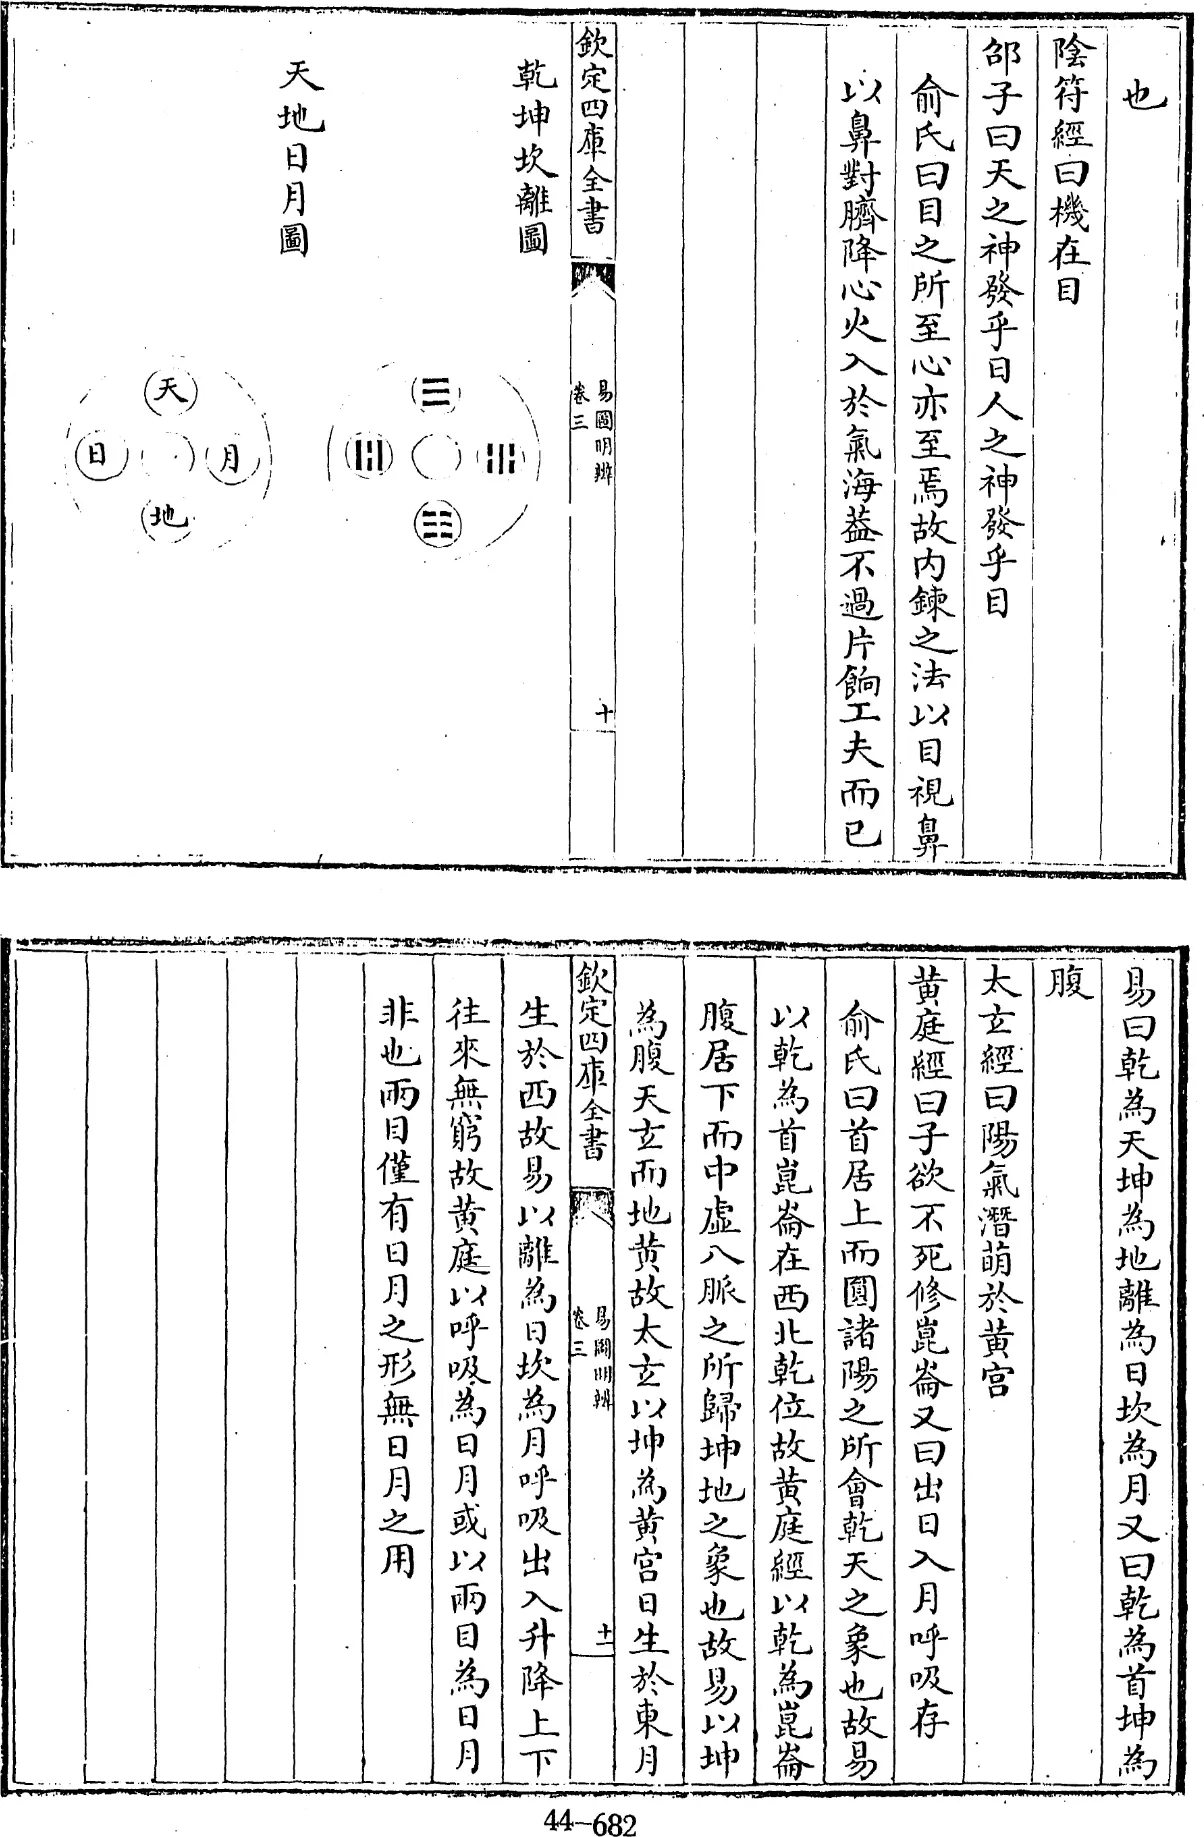 也
陰符經曰機在目
邵子曰天之神發乎日人之神發乎目
俞氏曰目之所至心亦至焉故内鍊之法以目視鼻
以鼻對臍降心火入於氣海葢不過片餉工夫而已
欽定四庫全書
易圖明辨
卷三
十
乾坤坎離圖
☰
☵
☲
☷
天地日月圖
天
月
日
地
易曰乾為天坤為地離為日坎為月又曰乾為首坤為
腹
太玄經曰陽氣潛萌於黄宫
黄庭經曰子欲不死修崑崙又曰出日入月呼吸存
俞氏曰首居上而圓諸陽之所會乾天之象也故易
以乾為首崑崙在西北乾位故黄庭經以乾為崑崙
腹居下而中虛八脈之所歸坤地之象也故易以坤
為腹天玄而地黄故太玄以坤為黄宫日生於東月
欽定四庫全書
易圖明辨
卷三
十一
生於西故易以離為日坎為月呼吸出入升降上下
往來無窮故黄庭以呼吸為日月或以兩目為日月
非也兩目僅有日月之形無日月之用
44-682